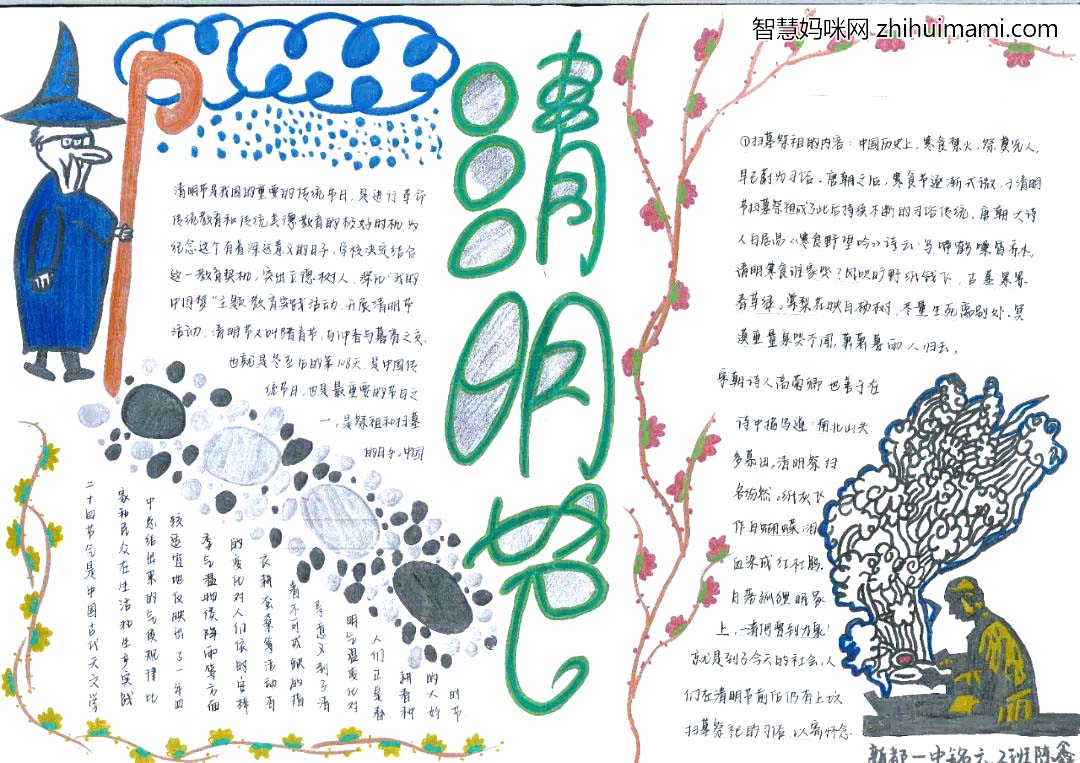 智慧妈咪网 zhihuimami.com
清明节
清明节是我国的重要的传统节日，是进行革命
传统教育和传统美德教育的极好时机 为
纪念这个有着深远意义的日子，学校决定结合
这一教育契机，突出立德树人，深化“我的
中国梦”主题教育实践活动，开展清明节
活动，清明节又叫踏青节，与仲春与暮春之交，
也就是冬至后的第108天，是中国传
统节日，也是最重要的节日之
一，是祭祖和扫墓
的日子，中国
二十四节气是中国古代天文学
家和民众在生活和生产实践
中总结出来的气候规律比
较适宜地反映出了一年四
季气温物候降雨等方面
的变化对人们依的安排
农耕蚕桑等活动有
着不可或缺的指
导意义到了清
明气温变化对
人们正是春
耕春种
的大好
时节
①扫墓祭祖的内容：中国历史上，寒食禁火，祭奠先人，
早已蔚为习俗。唐朝之后，寒食节逐渐式微，于清明
节扫墓祭祖成了此后持续不断的习俗传统，唐朝大诗
人白居易《寒食野望吟》诗云：乌啼鹊噪昏乔木，
清明寒食谁家哭？风吹旷野纸钱飞，古墓累累
春草绿，棠梨花映白杨树，尽是生死离别处。冥
漠重泉哭不闻，萧萧暮雨人归去。
宋朝诗人高菊卿也曾于在
诗中描写道：南北山头
多墓田，清明祭扫
各纷然，纸灰飞
作白蝴蝶，泪
血染成红杜鹃。
日落狐狸眠冢
上，
京尤是到了今天的社会，人
们在清明节前后仍有上坟
扫墓祭祀的习俗，以寄怀念
新都一中铭六.2班陈鑫